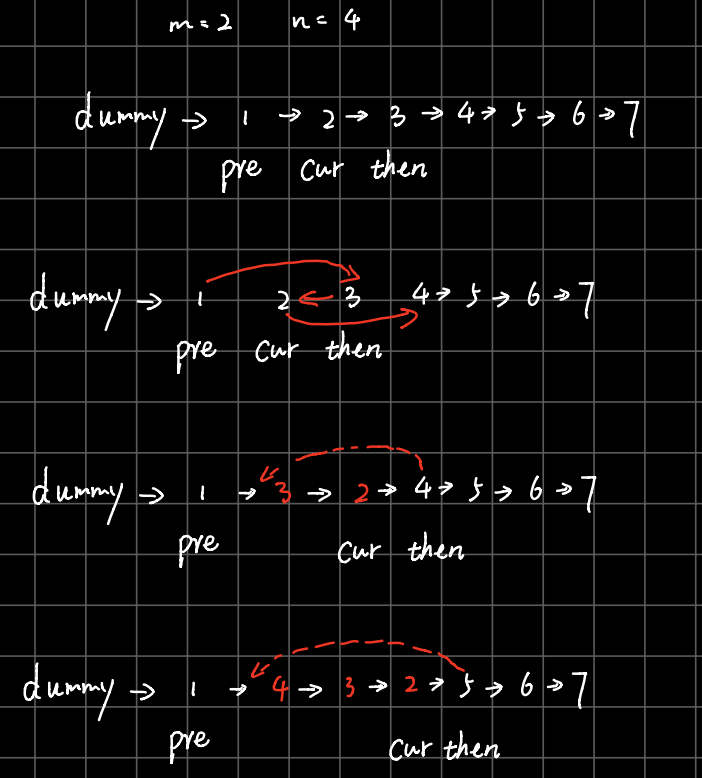 m = 2 n = 4
dummy → 1 → 2 → 3 → 4 → 5 → 6 → 7
pre cur then
dummy → 1 2 ← 3 4 → 5 → 6 → 7
pre cur then
dummy → 1 → 3 → 2 → 4 → 5 → 6 → 7
pre cur then
dummy → 1 → 4 → 3 → 2 → 5 → 6 → 7
pre cur then